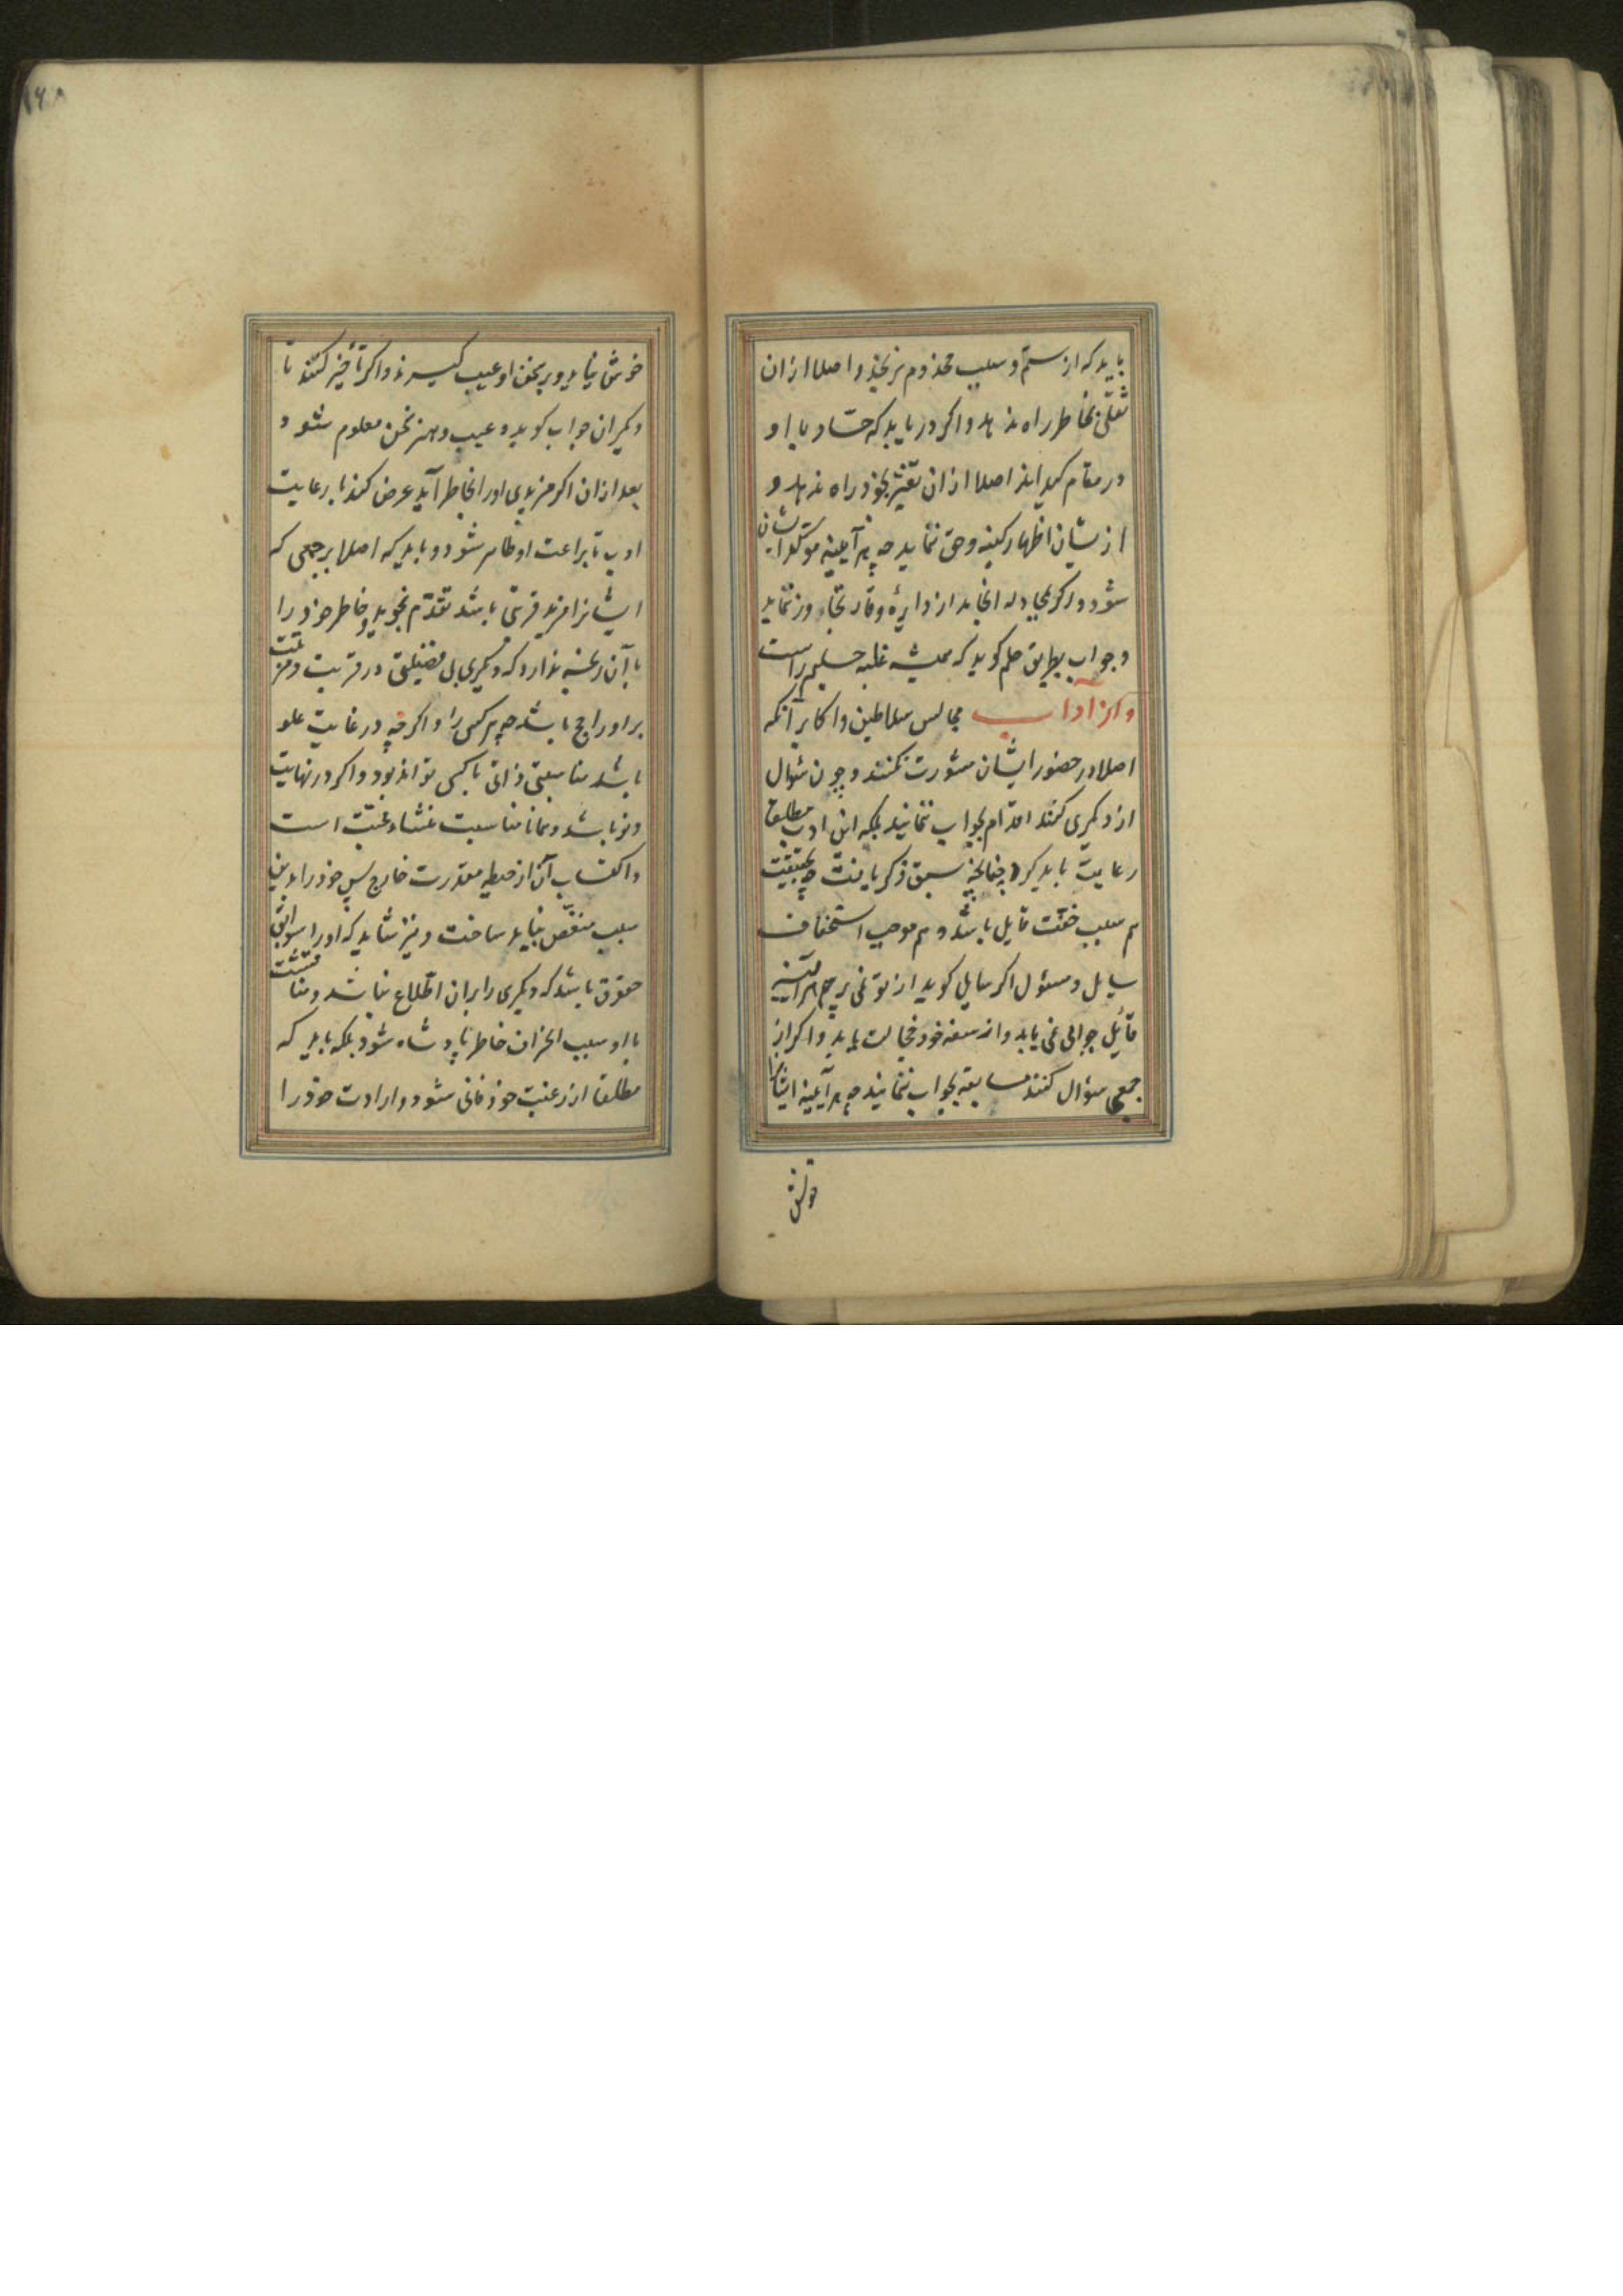 باید که از ستم و سبب مخذوم نرنجد و اصلا ازان
ثقلی بخاطر راه ندهد و اکر دریابد که حساد با او
در مقام کیدانذ اصلا ازان تغیّر بخود راه ندهد و
ازیشان اظهار کینه و حق ننماید چه هر آیینه موکد ایشان
شود و اکر بمجادله انجامد از دایرهٔ وقار تجاوز ننماید
و جواب بطریق حلم کوید که همیشه غلبه حلیم راست
و از آداب مجالس سلاطین و اکابر آنکه
اصلا در حضور ایشان مشورت نکنند و چون سٔوال
از دیکری کنند اقدام بجواب ننمانید بلکه این ادب مطلقا
رعایت باید کرد چنانچه سبق ذکر یافت چه بحقیقت
هم سبب خفّت قایل باشد و هم موجب استخفاف
سایل و مسئول اکر سایل کوید از تو نمی پرسم هر آینه
قائل جوابی نمی یابد و از سفه خود خجالت یابد و اکر از
جمعی سؤال کنند مسابقه بجواب ننمایند چه هر آیینه ایشانرا
خوش نیاید و بر سخن او عیب کیرند و اکر تأخیر کنند تا
دیکران جواب کویند و عیب و هنر سخن معلوم شود و
بعد ازان اکر مزیدی اورا بخاطر آید عرض کند با رعایت
ادب تا براعت او ظاهر شود و باید که اصلا بر جمعی که
ایشانرا مزید قربتی باشد تقدّم نجوید و خاطر خود را
بآن رنجه ندارد که دیکری بی فضیلتی در قربت و منزلت
بر او راجح باشد چه هر کسی را و اکر چه در غایت علو
باشد مناسبتی ذاتی با کسی تواند بود و اکر در نهایت
دنو باشد و همانا مناسبت منشاء محبّت است
و اکتساب آن از حیطهٔ مقدرت خارج پس خود را بدین
سبب منغّص نباید ساخت و نیز شاید که اورا سوابق
حقوق باشد که دیکری را بران اطّلاع نباشد و مناقشت
با او سبب انحراف خاطر پادشاه شود بلکه باید که
مطلقا از رغبت خود فانی شود و ارادت خود را
خوش